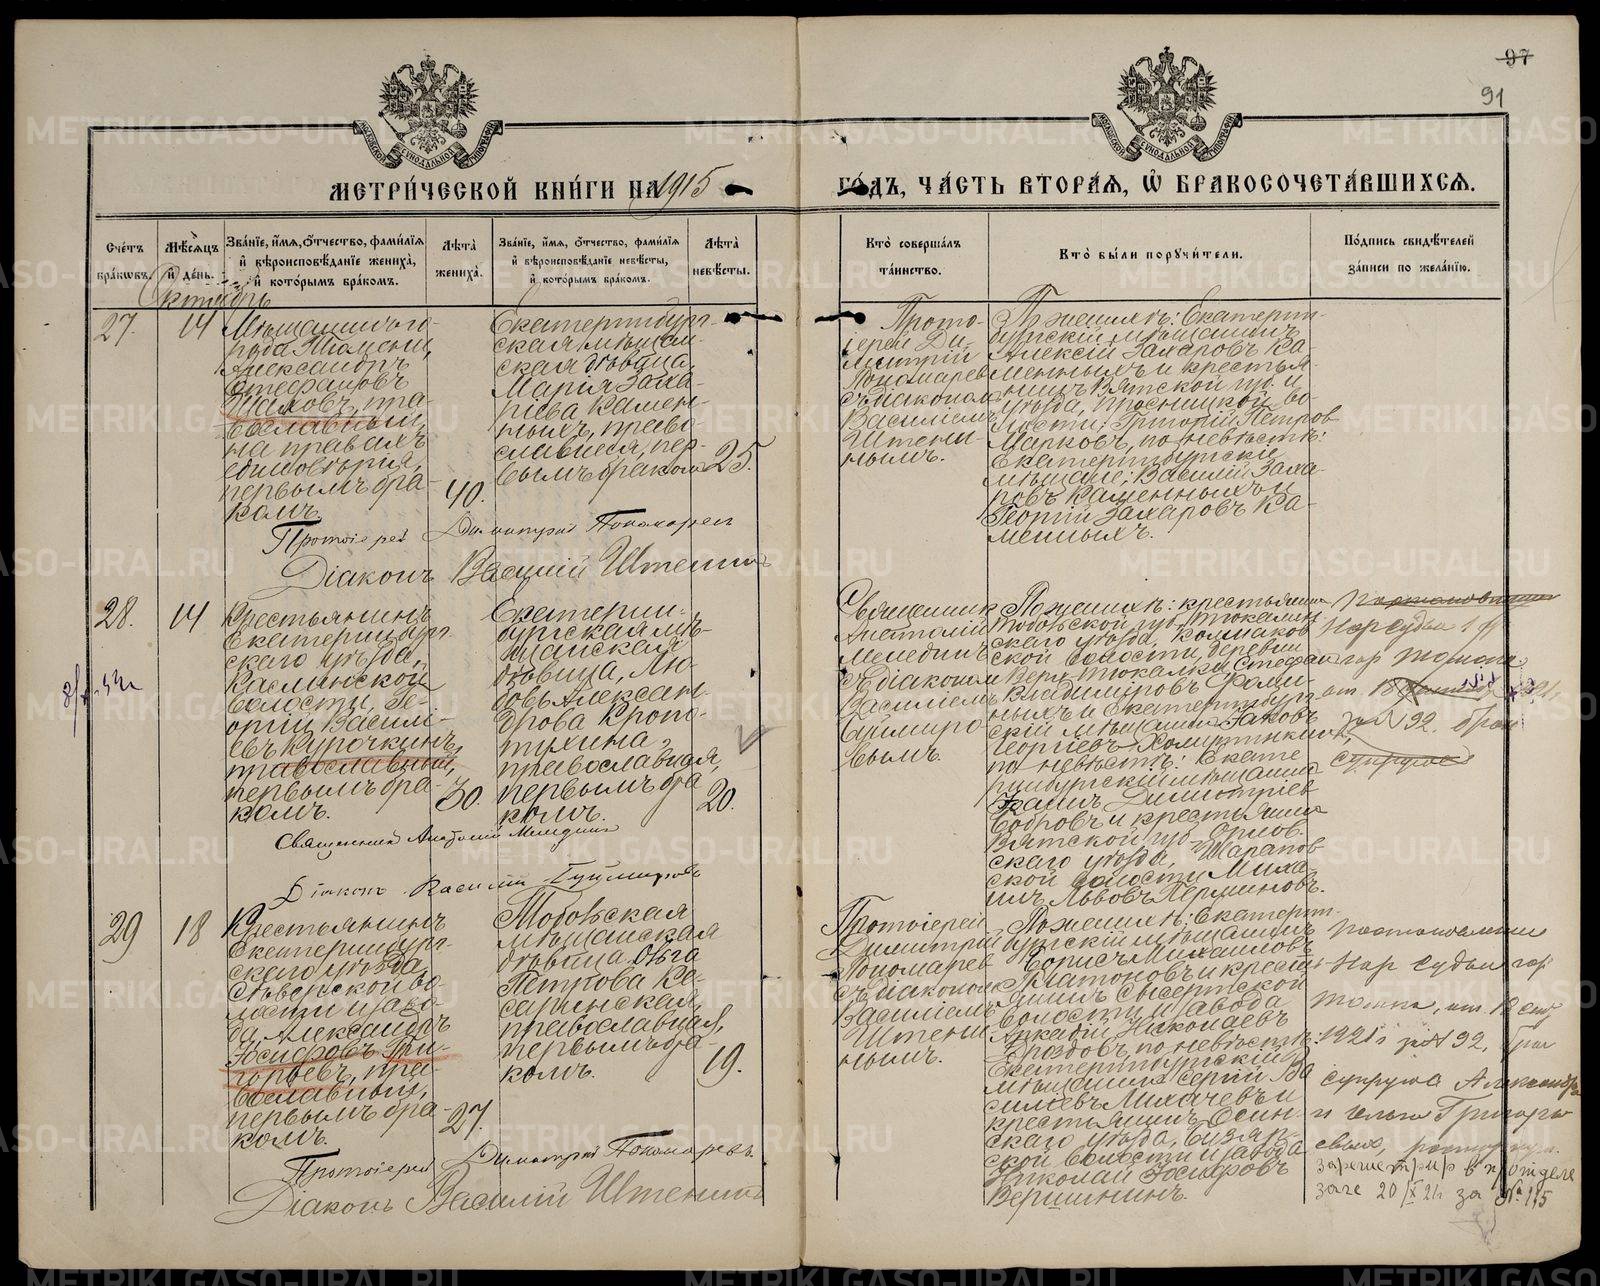 97
91
МЕТРИ́ЧЕСКОЙ КНИ́ГИ НА 1915
ГО́ДЪ, ЧА́СТЬ ВТОРА́Я, Ѡ БРАКОСОЧЕТА́ВШИХСЯ.
Сче́тъ бра́кѡвъ.
Мѣ́сяцъ и҆ де́нь.
Зва́нїе, и҆́мя, ѻ҆́тчество, фами́лїя и҆ вѣроисповѣ́данїе жениха̀, и҆ кото́рымъ бра́комъ.
Лѣ́та жениха̀.
Зва́нїе, и҆́мя, ѻ҆́тчество, фами́лїя и҆ вѣроисповѣ́данїе невѣ́сты, и҆ кото́рымъ бра́комъ.
Лѣ́та невѣ́сты.
Кто̀ соверша́лъ та́инство.
Кто̀ бы́ли поручи́тели.
По́дпись свидѣ́телей за́писи по жела́нїю.
Октябрь
27.
14
Мѣщанинъ го-
рода Тюмени,
Александръ
Стефановъ
Шаховъ, пра-
вославный
на правахъ
единовѣрія,
первымъ бра-
комъ.
40.
Екатеринбург-
ская мѣщан-
ская дѣвица,
Марія Заха-
ріева Камен-
ныхъ, право-
славная, пер-
вымъ бракомъ
25.
Прото-
іерей Ди-
митрій
Пономаревъ
съ діакономъ
Василіемъ
Штени-
нымъ.
По женихѣ: Екатерин-
бургскій мѣщанинъ
Алексій Захаровъ Ка-
менныхъ и крестья-
нинъ Вятской губ. и
уѣзда, Просницкой во-
лости Григорій Петровъ
Марковъ, по невѣстѣ:
Екатеринбургскіе
мѣщане: Василій Заха-
ровъ Каменныхъ и
Георгій Захаровъ Ка-
менныхъ.
Протоіерей Димитрій Пономаревъ
Діаконъ Василій Штенинъ
28.
14
Крестьянинъ
Екатеринбург-
скаго уѣзда,
Каслинской
волости, Ге-
оргій Васильевъ
Курочкинъ,
православный,
первымъ бра-
комъ.
30.
Екатерин-
бургская мѣ-
щанская
дѣвица, Лю-
бовь Алексан-
дрова Кропо-
тухина,
православная,
первымъ бра-
комъ.
20.
Священникъ
Анатолій
Мелединъ
съ діакономъ
Василіемъ
По женихѣ: крестьянинъ
Тобольской губ., Тюкалин-
скаго уѣзда,
ской волости, деревни
Стефанъ
Владиміровъ
ныхъ и Екатеринбург-
скій мѣщанинъ Яковъ
Георгіевъ
по невѣстѣ: Екате-
ринбургскій мѣщанинъ
Димитріевъ
Бобровъ и крестьянинъ
Вятской губ. Орлов-
скаго уѣзда, Шарапов-
ской волости Миха-
илъ Львовъ Перминовъ.
Нарсудьи
гор
за № 92. брак
супругов
Священникъ Анатолій Мелединъ
Діаконъ Василій
29
18
Крестьянинъ
Екатеринбург-
скаго уѣзда
Сѣверской во-
лости и заво-
да, Александръ
Іосифовъ Гри-
горьевъ, пра-
вославный,
первымъ бра-
комъ.
27.
Тобольская
мѣщанская
дѣвица Ольга
Петрова Ке-
саринская,
православная,
первымъ бра-
комъ.
19.
Протоіерей
Димитрій
Пономаревъ
съ діакономъ
Василіемъ
Штени-
нымъ.
По женихѣ: Екатерин-
бургскій мѣщанинъ
Борисъ Михаиловъ
Платоновъ и кресть-
янинъ Сысертской
волости и завода
Аркадій Николаевъ
Дроздовъ, по невѣстѣ:
Екатеринбургскій
мѣщанинъ Сергій Ва-
сильевъ Лихачевъ и
крестьянинъ Осин-
скаго уѣзда, Бизяр-
ской волости и завода
Николай Іосифовъ
Вершининъ.
постановлением
Нар судьи гор
1921 г за № 92, брак
супруга Александра
и Григорь-
евых,
зарегистрир в п/отделе
заге 20/X 21 г за № 115
Протоіерей Димитрій Пономаревъ.
Діаконъ Василій Штенинъ
METRIKI.GASO-URAL.RU